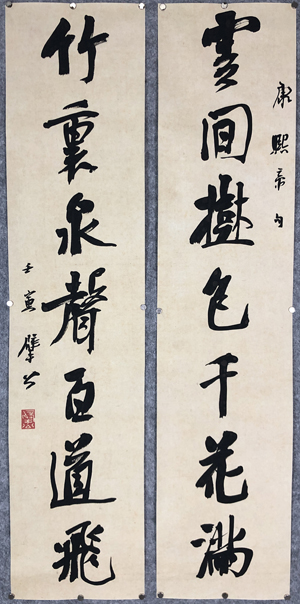 康熙帝句
雲間樹色千花滿
竹裏泉聲百道飛
壬寅